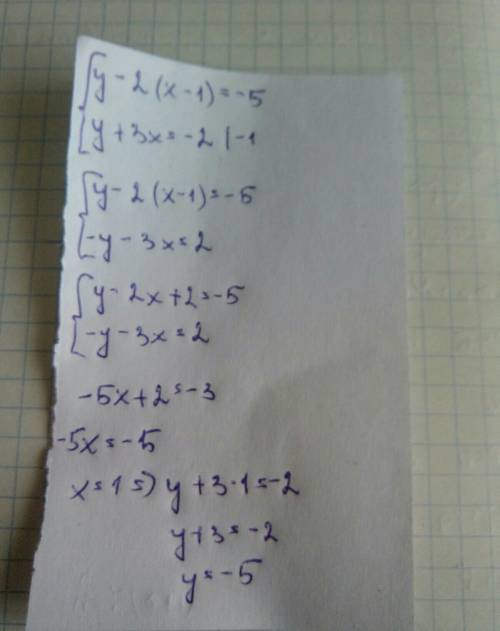 y - 2(x-1) = -5
y + 3x = -2 | -1
y - 2(x-1) = -5
-y - 3x = 2
y - 2x + 2 = -5
-y - 3x = 2
-5x + 2 = -3
-5x = -5
x = 1 => y + 3·1 = -2
y + 3 = -2
y = -5